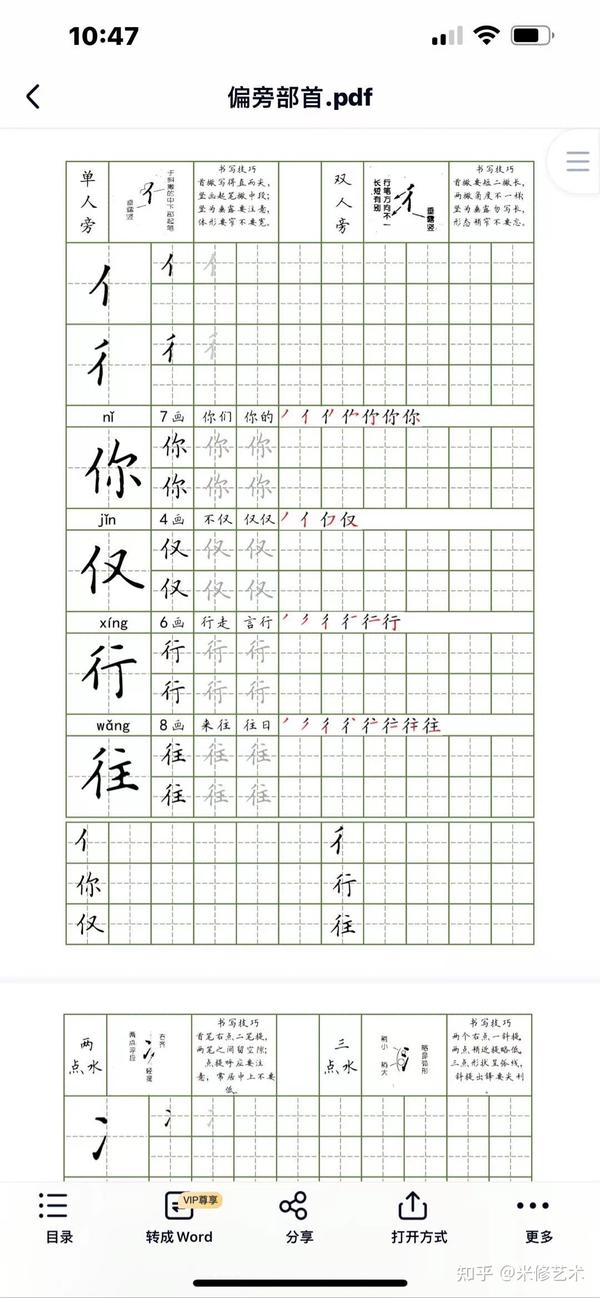 10:47
偏旁部首.pdf
单人旁
于斜撇的中下部起笔
垂露竖
书写技巧
首撇写得直而尖，
竖画起笔撇中段；
竖为垂露要注意，
体形要窄不要宽。
双人旁
行笔方向不一
长短有别
垂露竖
书写技巧
首撇要短二撇长，
两撇角度不一样；
竖为垂露勿写长，
形态稍窄不要忘。
亻 亻 亻
彳 彳 彳
nǐ 7画 你们 你的
你 你 你 你
你 你 你
jǐn 4画 不仅 仅仅
仅 仅 仅 仅
仅 仅 仅
xíng 6画 行走 言行
行 行 行 行
行 行 行
wǎng 8画 来往 往日
往 往 往 往
往 往 往
亻 彳
你 行
仅 往
两点水
书写技巧
首笔右点二笔提，
两笔之间留空隙；
点提呼应要注
意，常居中上不要
低。
三点水
稍小
稍大
略呈弧形
书写技巧
两个右点一斜提，
两点稍近提略低。
三点形状呈弧线，
斜提出锋要尖利
。
冫 冫 冫
目录
VIP尊享
转成Word
分享
打开方式
更多
知乎 @米修艺术